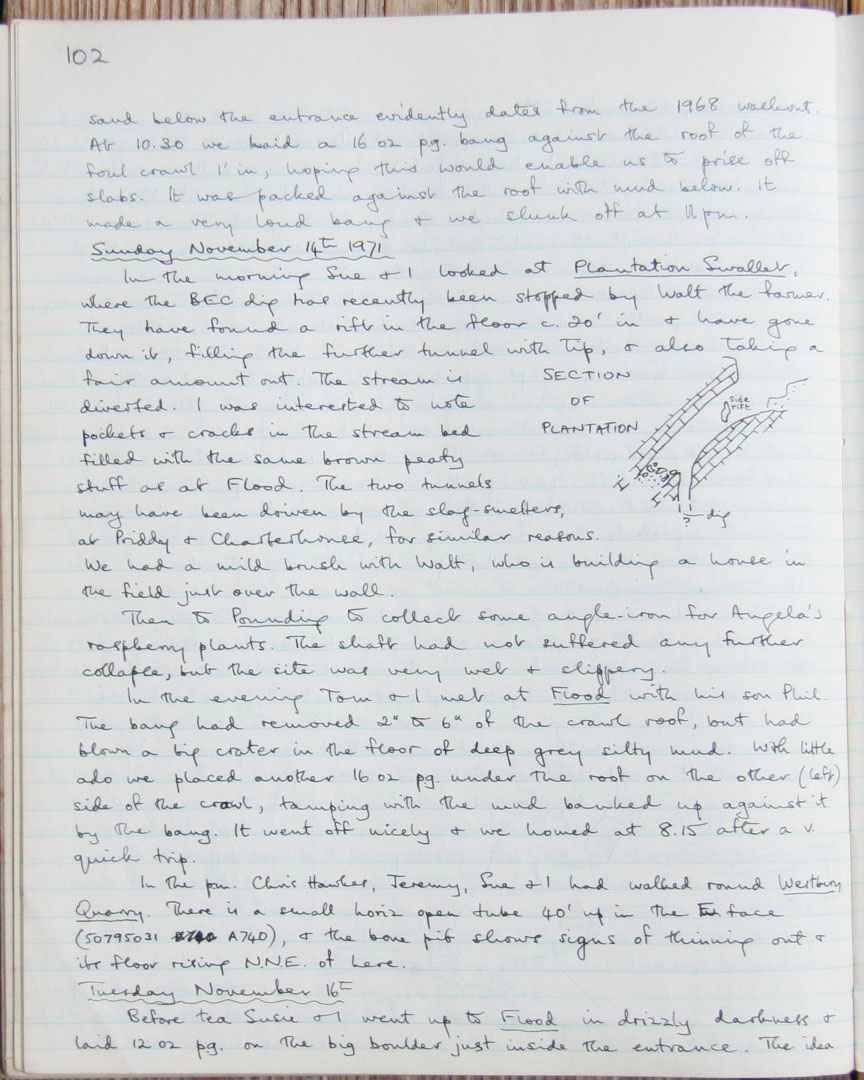 102
sand below the entrance evidently dates from the 1968 washout.
At 10.30 we laid a 16 oz pg. bang against the roof of the
foul crawl 1' in, hoping this would enable us to prise off
slabs. It was packed against the roof with mud below. It
made a very loud bang & we slunk off at 11pm.
Sunday November 14th 1971
In the morning Sue & I looked at Plantation Swallet,
where the BEC dig has recently been stopped by Walt the farmer.
They have found a rift in the floor c. 20' in & have gone
down it, filling the further tunnel with tip, & also taking a
fair amount out. The stream is
diverted. I was interested to note
pockets & cracks in the stream bed
filled with the same brown peaty
stuff as at Flood. The two tunnels
may have been driven by the slag-smelters,
at Priddy & Charterhouse, for similar reasons.
SECTION
OF
PLANTATION
side
rift
? dig
We had a mild brush with Walt, who is building a house in
the field just over the wall.
Then to Pounding to collect some angle-iron for Angela's
raspberry plants. The shaft had not suffered any further
collapse, but the site was very wet & slippery.
In the evening Tom & I met at Flood with his son Phil.
The bang had removed 2" to 6" of the crawl roof, but had
blown a big crater in the floor of deep grey silty mud. With little
ado we placed another 16 oz pg. under the roof on the other (left)
side of the crawl, tamping with the mud banked up against it
by the bang. It went off nicely & we homed at 8.15 after a v.
quick trip.
In the pm. Chris Hawkes, Jeremy, Sue & I had walked round Westbury
Quarry. There is a small horiz open tube 40' up in the E face
(50795031 A740), & the bone pit shows signs of thinning out &
its floor rising N.N.E. of here.
Tuesday November 16th
Before tea Susie & I went up to Flood in drizzly darkness &
laid 12 oz pg. on the big boulder just inside the entrance. The idea